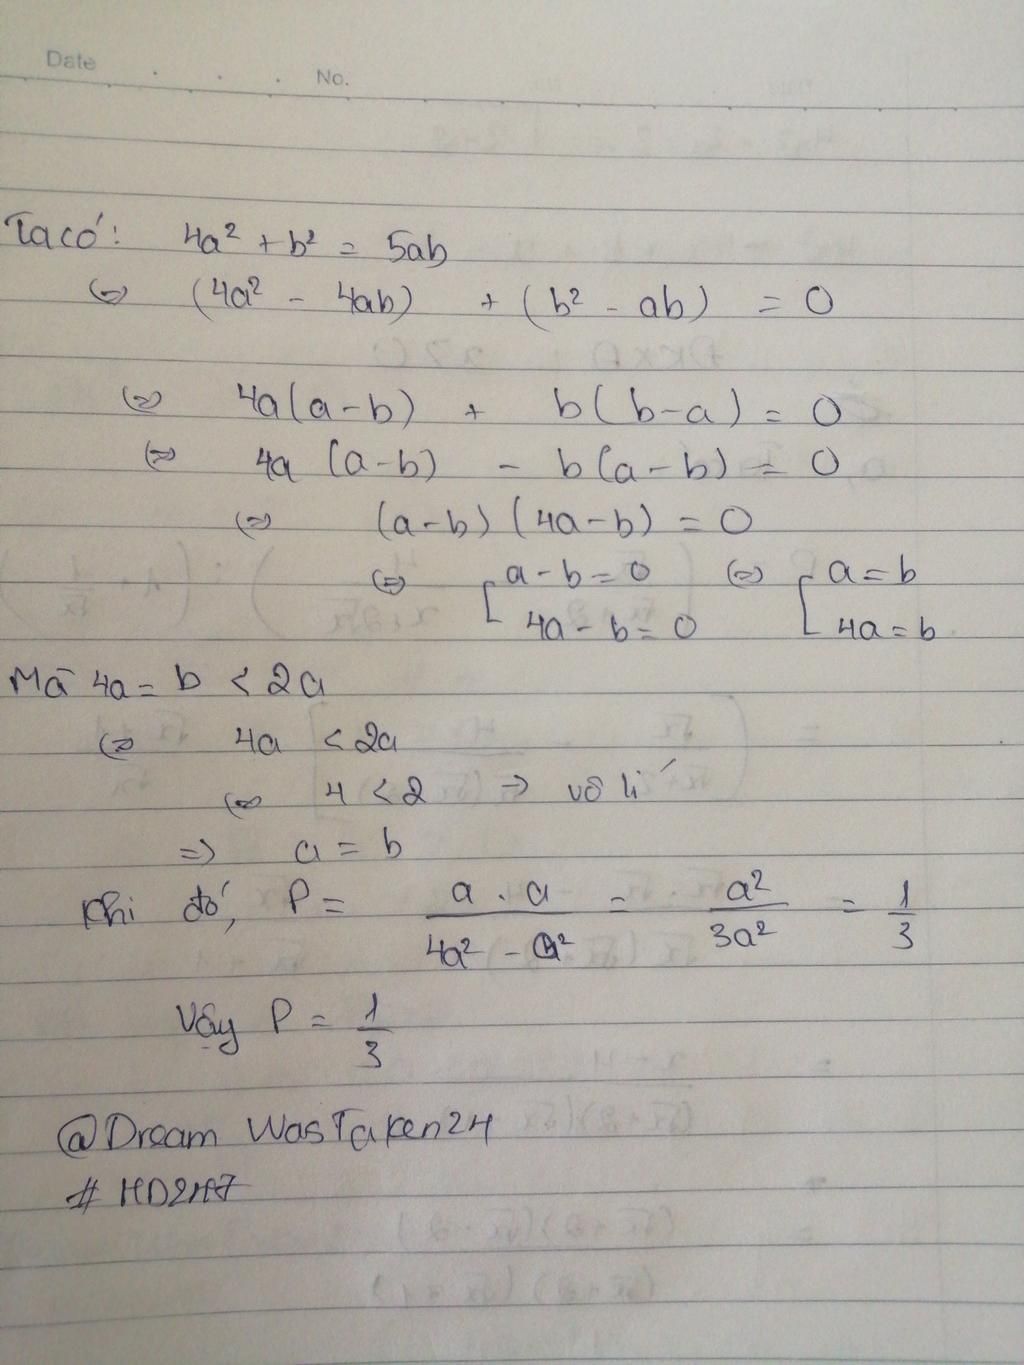 Date
No.
Ta có: 4a² + b² = 5ab
⇔ (4a² - 4ab) + (b² - ab) = 0
⇔ 4a(a-b) + b(b-a) = 0
⇔ 4a (a-b) - b(a-b) = 0
⇔ (a-b) (4a-b) = 0
⇔ [ a-b=0 ⇔ [ a=b
4a-b=0 4a=b
Mà 4a = b < 2a
⇔ 4a < 2a
⇔ 4 < 2 ⇒ vô lí
⇒ a = b
Khi đó, P = a.a / (4a² - a²) = a² / 3a² = 1/3
Vậy P = 1/3
@Dream WasTaken24
# HD247